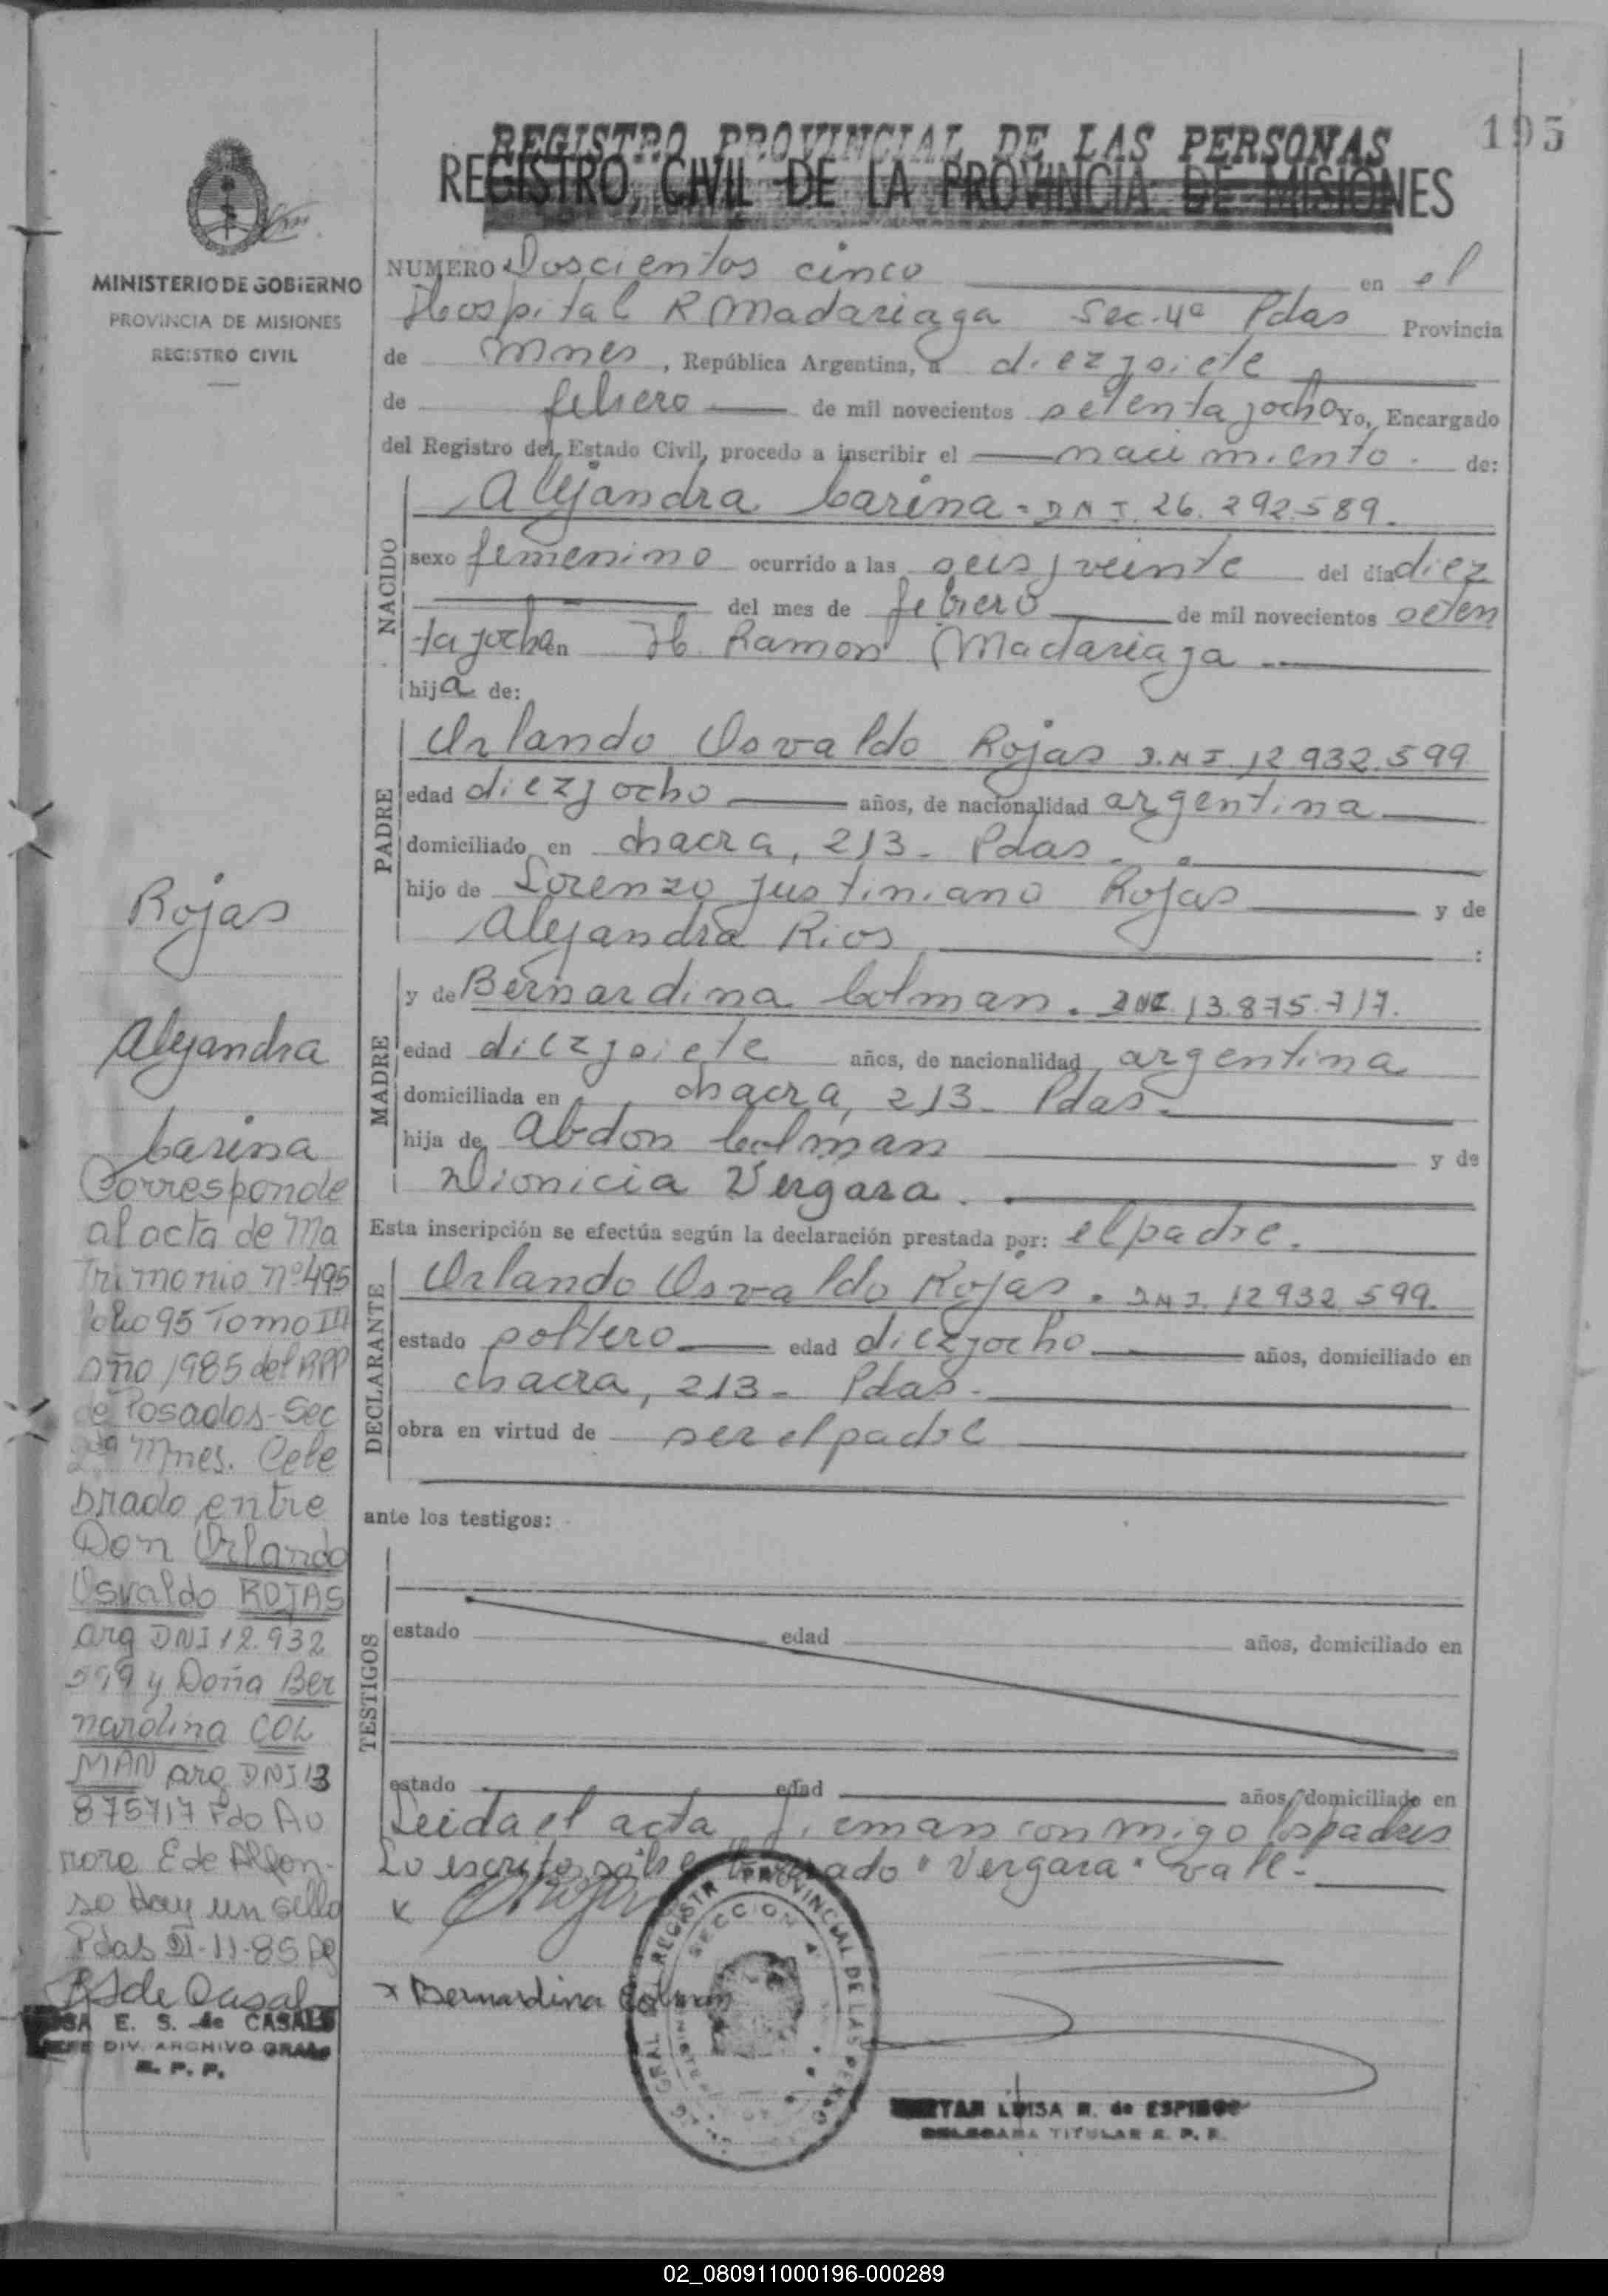 195
REGISTRO PROVINCIAL DE LAS PERSONAS
REGISTRO CIVIL DE LA PROVINCIA DE MISIONES
MINISTERIO DE GOBIERNO
PROVINCIA DE MISIONES
REGISTRO CIVIL
NUMERO Doscientos cinco en el
Hospital R Madariaga Sec. 4ª Pdas Provincia
de Mnes, República Argentina, a diezysiete
de febrero de mil novecientos setentayocho Yo, Encargado
del Registro del Estado Civil, procedo a inscribir el nacimiento. de:
NACIDO
Alejandra Carina - DNI. 26.292.589.
sexo femenino ocurrido a las seis y veinte del día diez
del mes de febrero de mil novecientos seten
tayocho en H. Ramon Madariaga
hija de:
PADRE
Orlando Osvaldo Rojas D.N.I. 12 932.599
edad diezyocho años, de nacionalidad argentina
domiciliado en chacra, 213 - Pdas.
hijo de Lorenzo Justiniano Rojas y de
Alejandra Rios :
MADRE
y de Bernardina Colman. DNI. 13.875.717.
edad diezysiete años, de nacionalidad argentina
domiciliada en chacra, 213 - Pdas.
hija de Abdon Colman y de
Dionicia Vergara.
Esta inscripción se efectúa según la declaración prestada por: el padre.
DECLARANTE
Orlando Osvaldo Rojas. D.N.I. 12 932 599.
estado soltero edad diezyocho años, domiciliado en
chacra, 213 - Pdas.
obra en virtud de ser el padre
ante los testigos:
TESTIGOS
estado edad años, domiciliado en
estado edad años, domiciliado en
Leida el acta firman conmigo los padres
Lo escrito sobre borrado "Vergara" vale -
x Bernardina Colman
SECCION 4
LUISA R. de ESPINOZ
DELEGADA TITULAR R. P. P.
Rojas
Alejandra
Carina
Corresponde
al acta de Ma
trimonio nº 495
folio 95 Tomo III
año 1985 del RPP
de Posadas - Sec
2da Mnes. Cele
brado entre
Don Orlando
Osvaldo ROJAS
arg DNI 12.932
599 y Doña Ber
nardina COL
MAN arg DNI 13
875717 Fdo Au
rora E de Alfon-
so Hay un sello
Pdas 21-11-85
E. S. de CASAL
JEFE DIV. ARCHIVO GRAL
R. P. P.
02_080911000196-000289